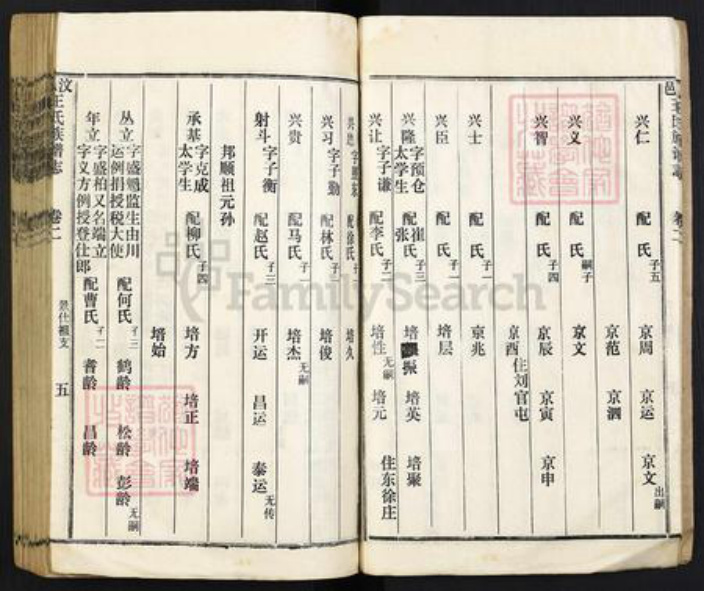 兴仁 配 氏 子五 京周 京运 京文 出嗣
京范 京泗
兴义 配 氏 嗣子 京文
兴智 配 氏 子四 京辰 京寅 京申
京酉 住刘官屯
兴士 配 氏 子一 京兆
兴臣 配 氏 子一 培层
兴隆 字预仓 太学生 配崔氏 张 子三 培振 培英 培聚
兴让 字子谦 配李氏 子二 培性 无嗣 培元 住东徐庄
配徐氏 培久
兴习 字子勤 配林氏 子一 培俊
兴贵 配马氏 子一 培杰 无嗣
射斗 字子衡 配赵氏 子三 开运 昌运 泰运 无传
邦顺祖元孙
承基 字克成 太学生 配柳氏 子四 培方 培正 培端
培始
丛立 字盛魁监生由川运例捐授税大使 配何氏 子三 鹤龄 松龄 彭龄 无嗣
年立 字盛柏又名端立 字义方例授登仕郎 配曹氏 子二 耆龄 昌龄
汶 王氏族谱志 卷二 景仕祖支 五
FamilySearch